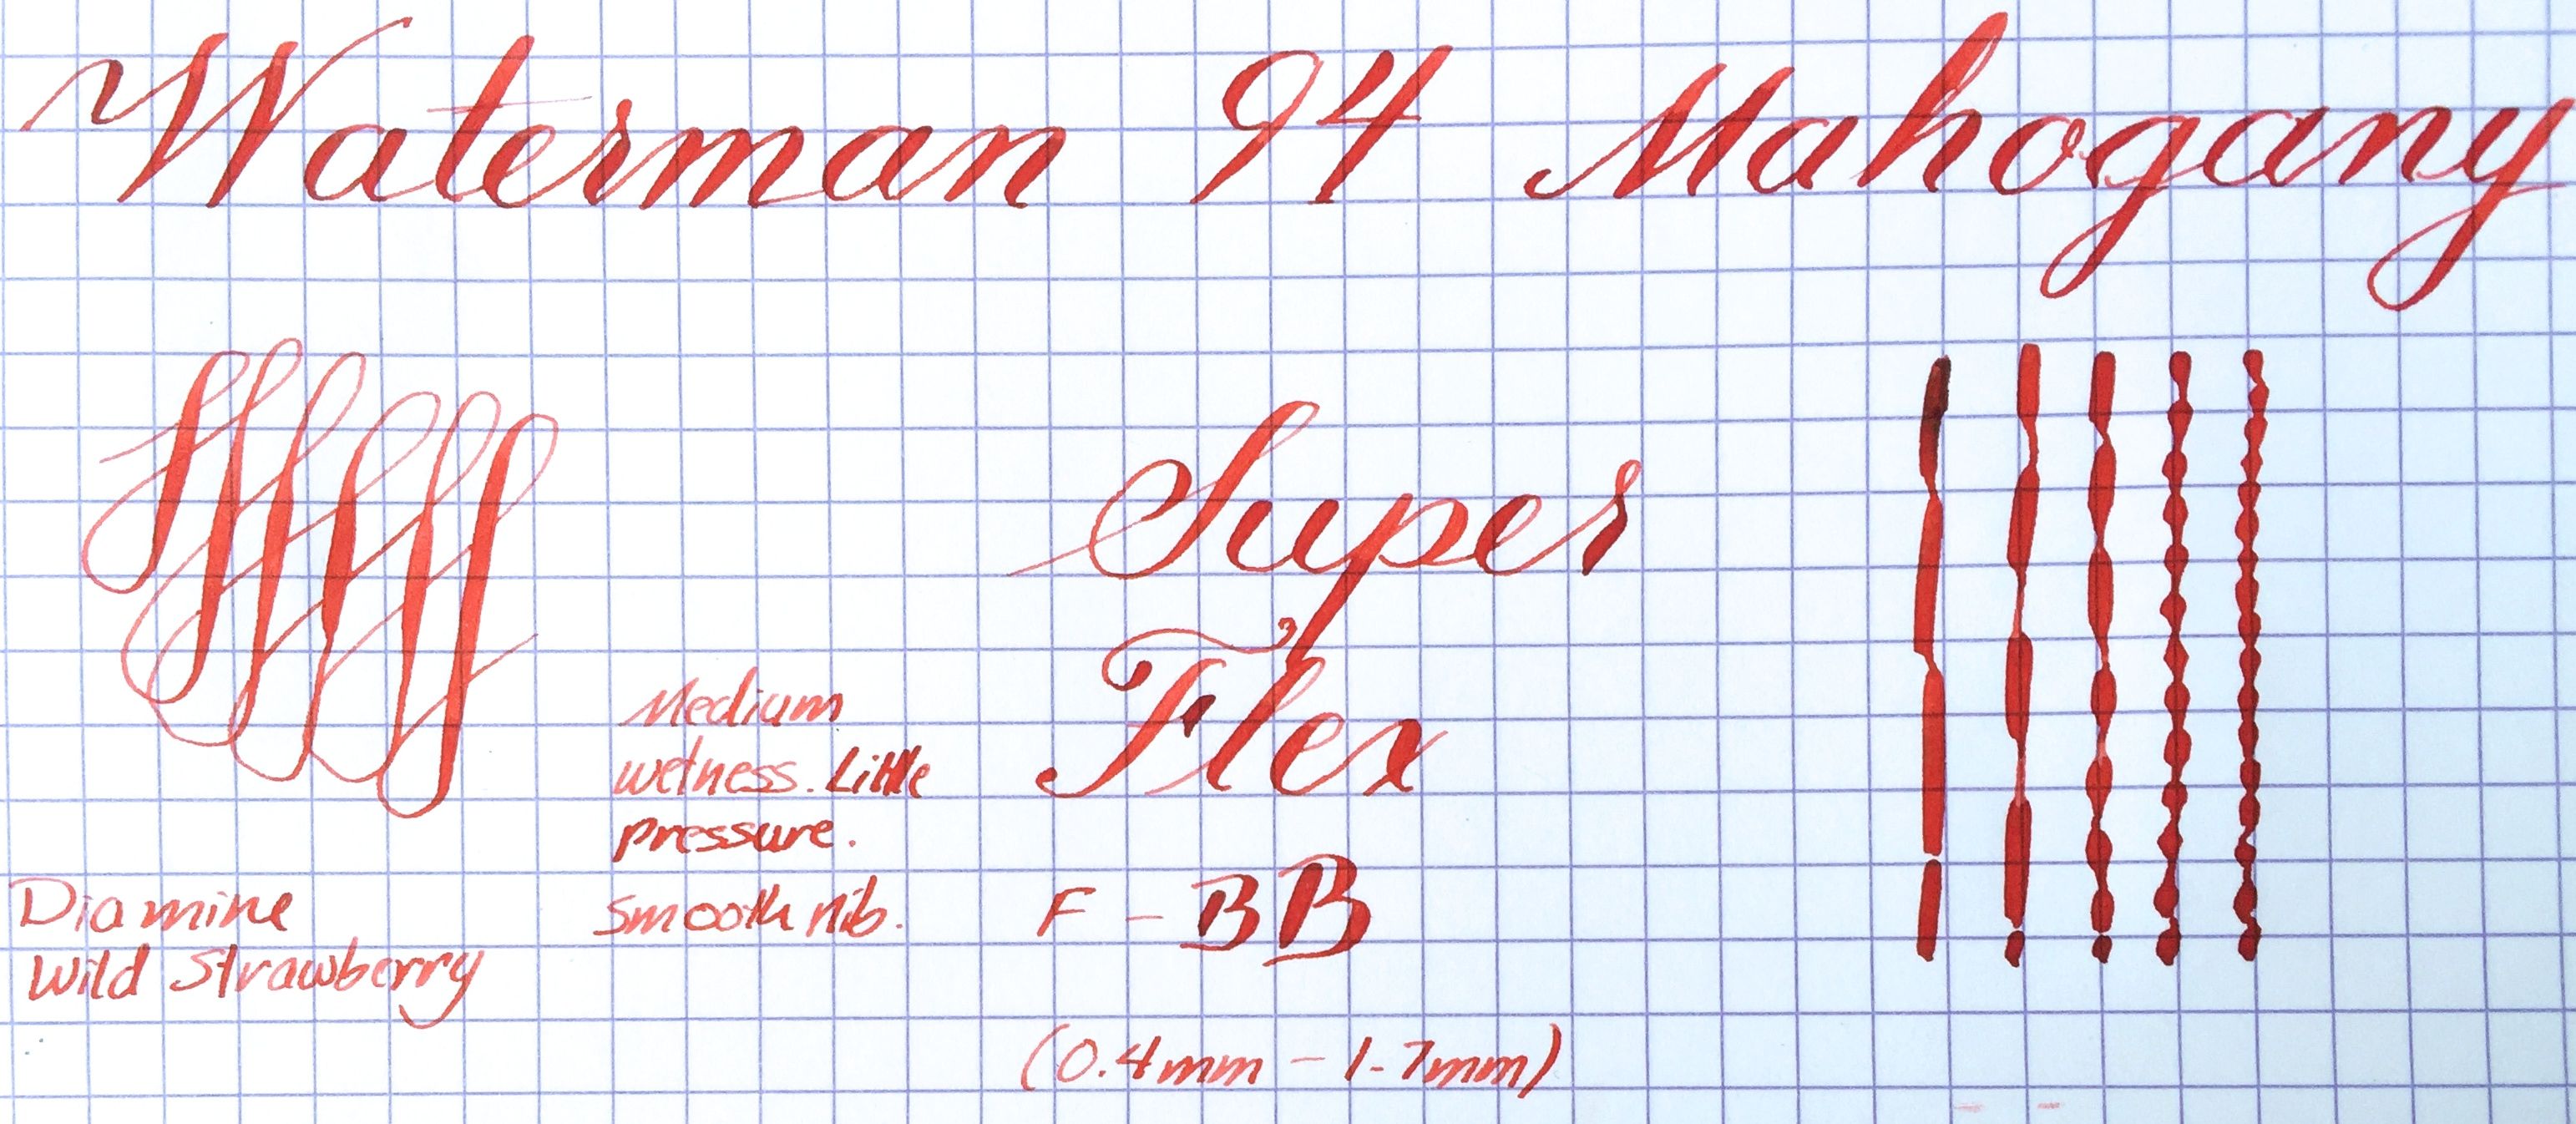 Waterman 94 Mahogany
Super
Flex
Medium
wetness. Little
pressure.
Smooth nib.
F - BB
Diamine
Wild Strawberry
(0.4mm - 1.7mm)